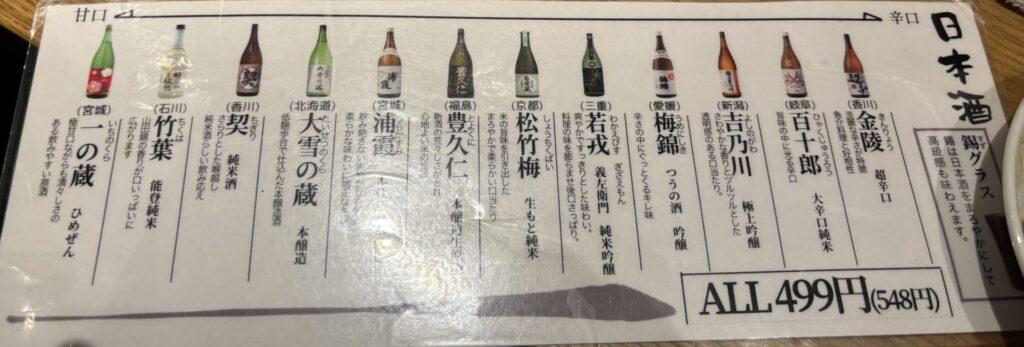 日本酒
錫グラス
すず
錫は日本酒をまろやかにして
高級感も味わえます。
甘口
辛口
(香川)
きんりょう
金陵 超辛口
魚介料理と好相性
(岐阜)
ひゃくじゅうろう
百十郎 大辛口純米
旨味の中に光る辛口
(新潟)
よしのがわ
吉乃川 極上吟醸
さわやかな香りとツルッとした
透明感のある口当たり。
(愛媛)
うめにしき
梅錦 つうの酒 吟醸
辛さの中にぐっとくるキレ味
(三重)
わかえびす ぎざえもん
若戎 義左衛門 純米吟醸
爽やかですっきりとした味わい。
料理の味を膨らませ後口さっぱり。
(京都)
しょうちくばい
松竹梅 生もと純米
米の旨味を引き出した
まろやかで柔らかい口当たり
(福島)
とよくに
豊久仁 本醸造生原
心地よい米の
(宮城)
浦霞
(北海道)
たいせつのくら
大雪の蔵 本醸造
低麹歩合で仕込んだ本醸造酒
(香川)
ちぎり
契 純米酒
さらりとした喉越し
純米酒らしい飲み応え
(石川)
ちくは
竹葉 能登純米
山田錦の香りが口いっぱいに
広がります
(宮城)
いちのくら
一の蔵 ひめぜん
極甘口ながらも清々しさの
ある飲みやすい原酒
ALL 499円(548円)